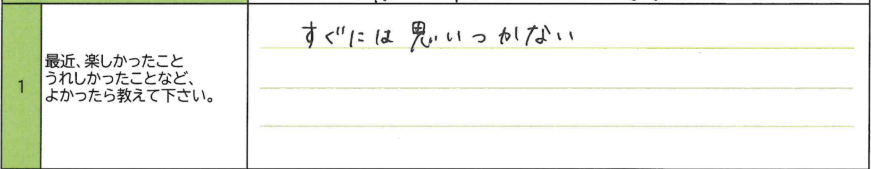 1
最近、楽しかったこと
うれしかったことなど、
よかったら教えて下さい。
すぐには思いつかない